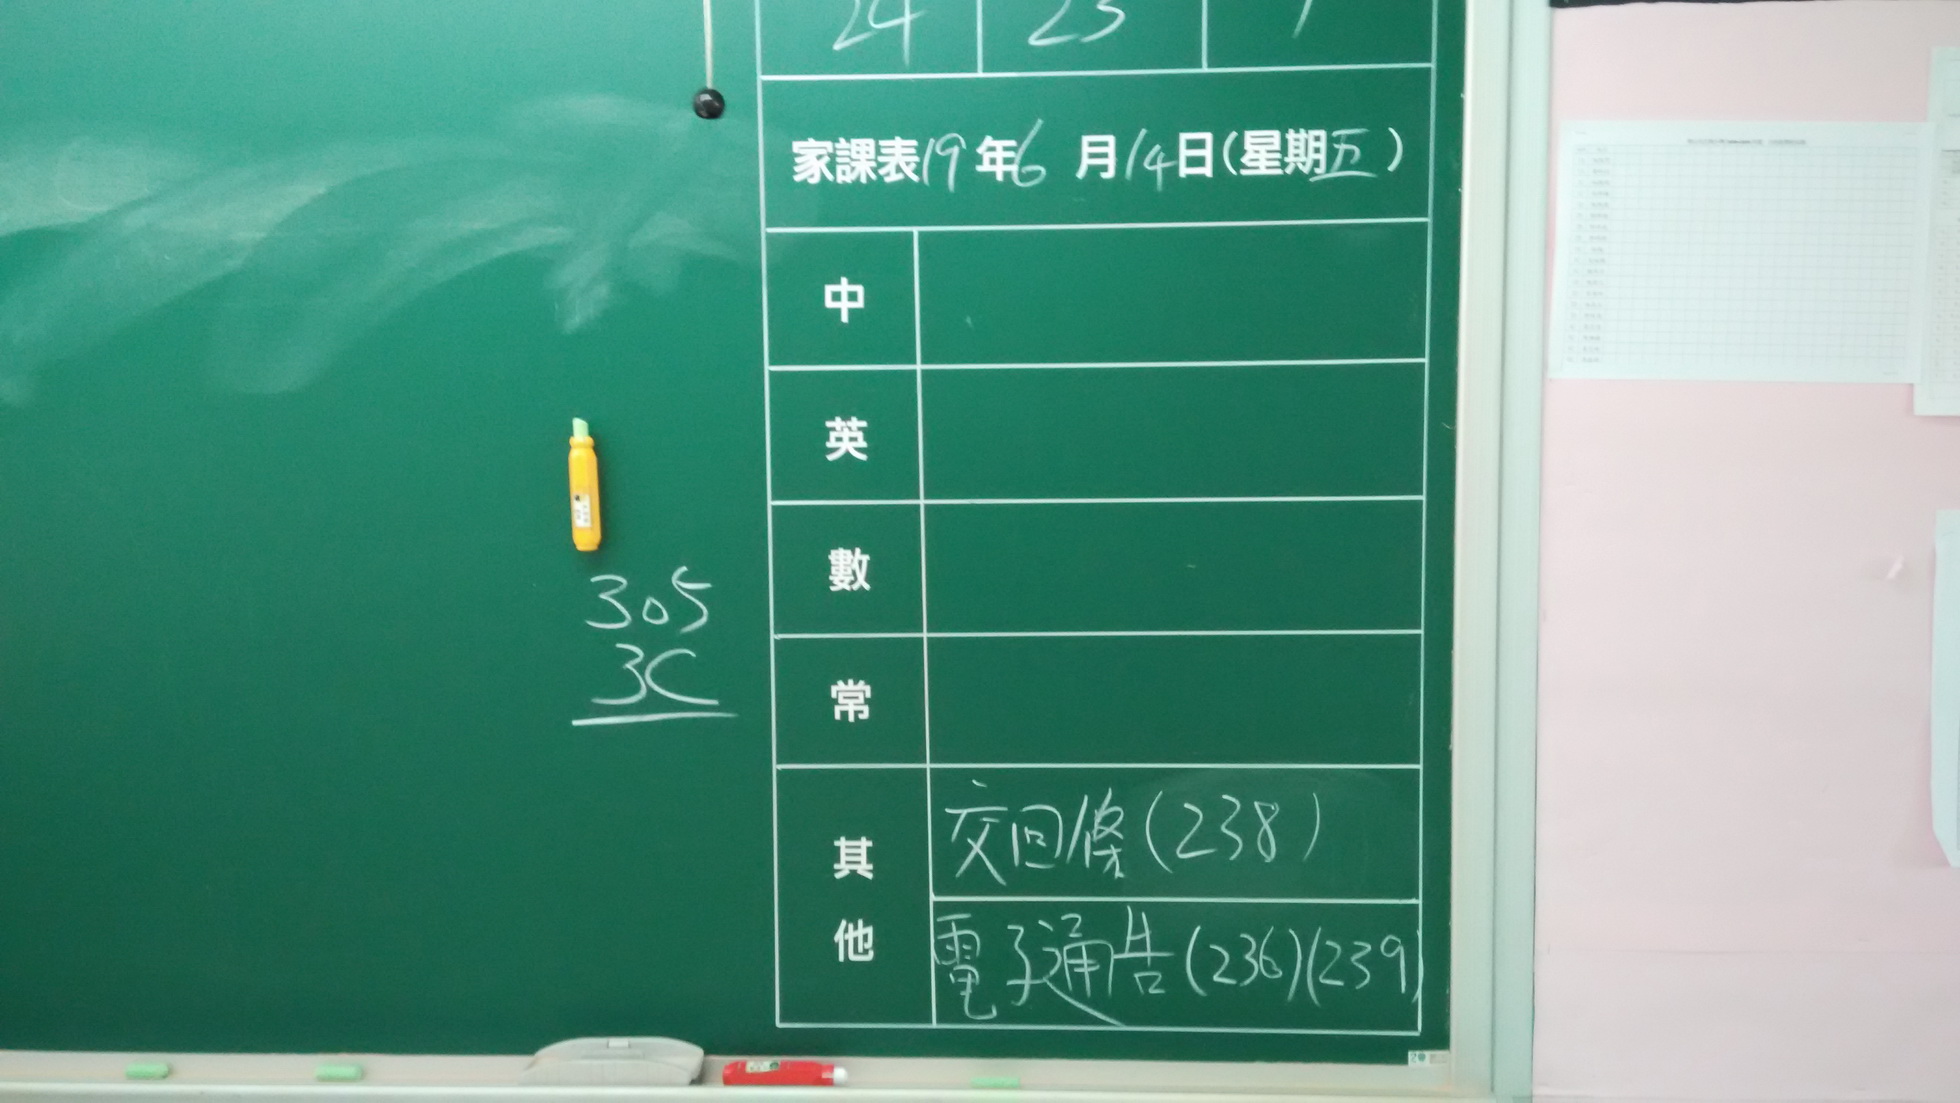 24 23 1
家課表19年6月14日(星期五)
中
英
數
常
其他
交回條(238)
電子通告(236)(239)
305
3C